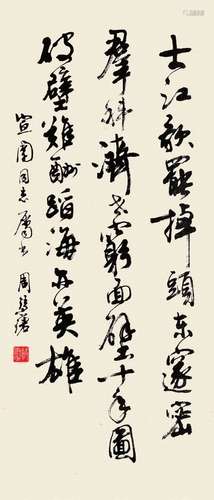 大江歌罷掉頭東邃密
羣科濟世窮面壁十年圖
破壁難酬蹈海亦英雄
同志屬書 周